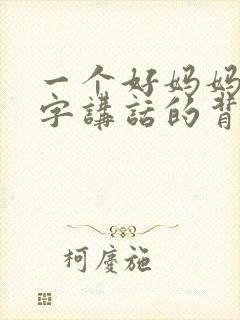 一个好妈妈
字講話的背
柯慶施